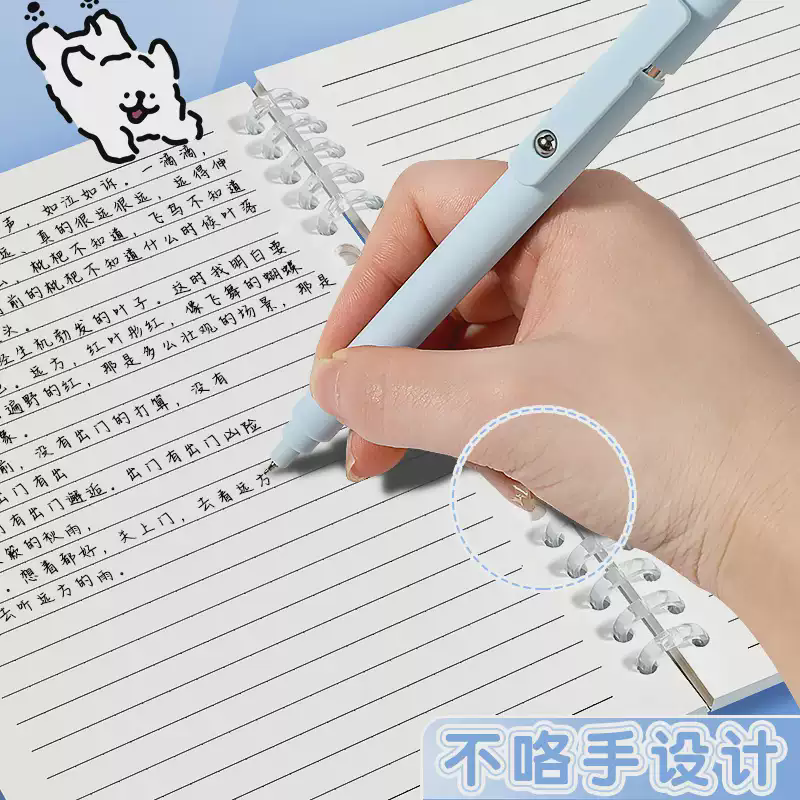 声，如泣如诉。一滴滴，
远、真的很远很远，远得伸
么，枇杷不知道，飞鸟不知道
前的枇杷不知道什么时候叶落
头。
经生机勃发的叶子。这时我明白要
远方，红叶彤红，像飞舞的蝴蝶
遍野的红，那是多么壮观的场景，那是
象。
前，没有出门的打算，没有
出门有出
有出门邂逅。出门有出门凶险
簌的秋雨，
想看都好，关上门，去看远方
去听远方的雨。
不咯手设计